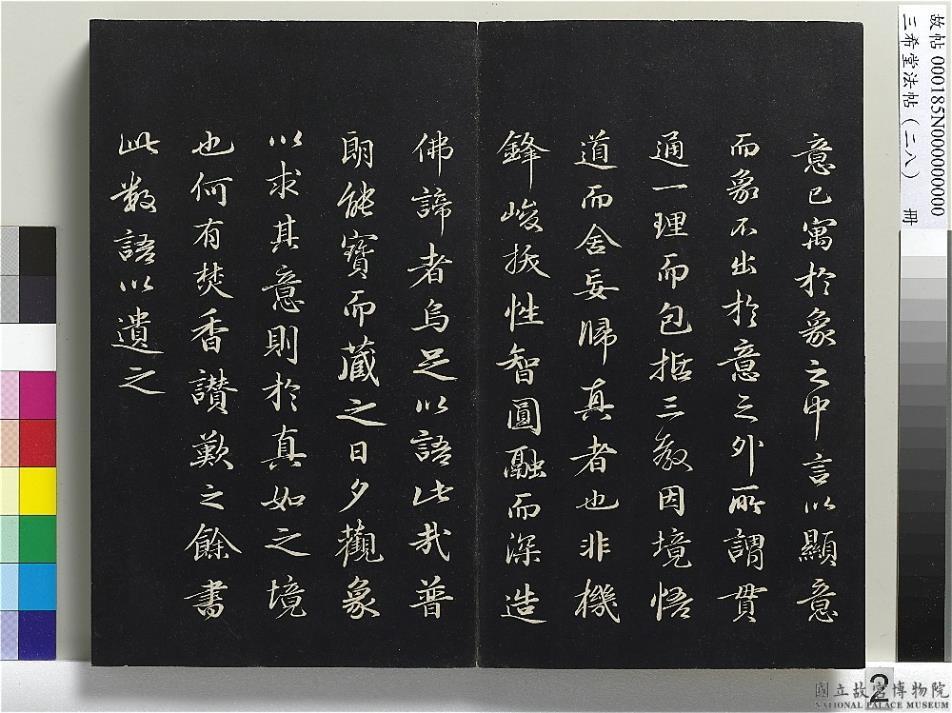 意已寓於象之中言以顯意
而象不出於意之外所謂貫
通一理而包括三教因境悟
道而舍妄歸真者也非機
鋒峻拔性智圓融而深造
佛諦者烏足以語此哉普
朗能寶而藏之日夕觀象
以求其意則於真如之境
也何有焚香讚歎之餘書
此數語以遺之
故帖 000185N000000000
三希堂法帖(二八) 冊
2
國立故宮博物院
NATIONAL PALACE MUSEUM